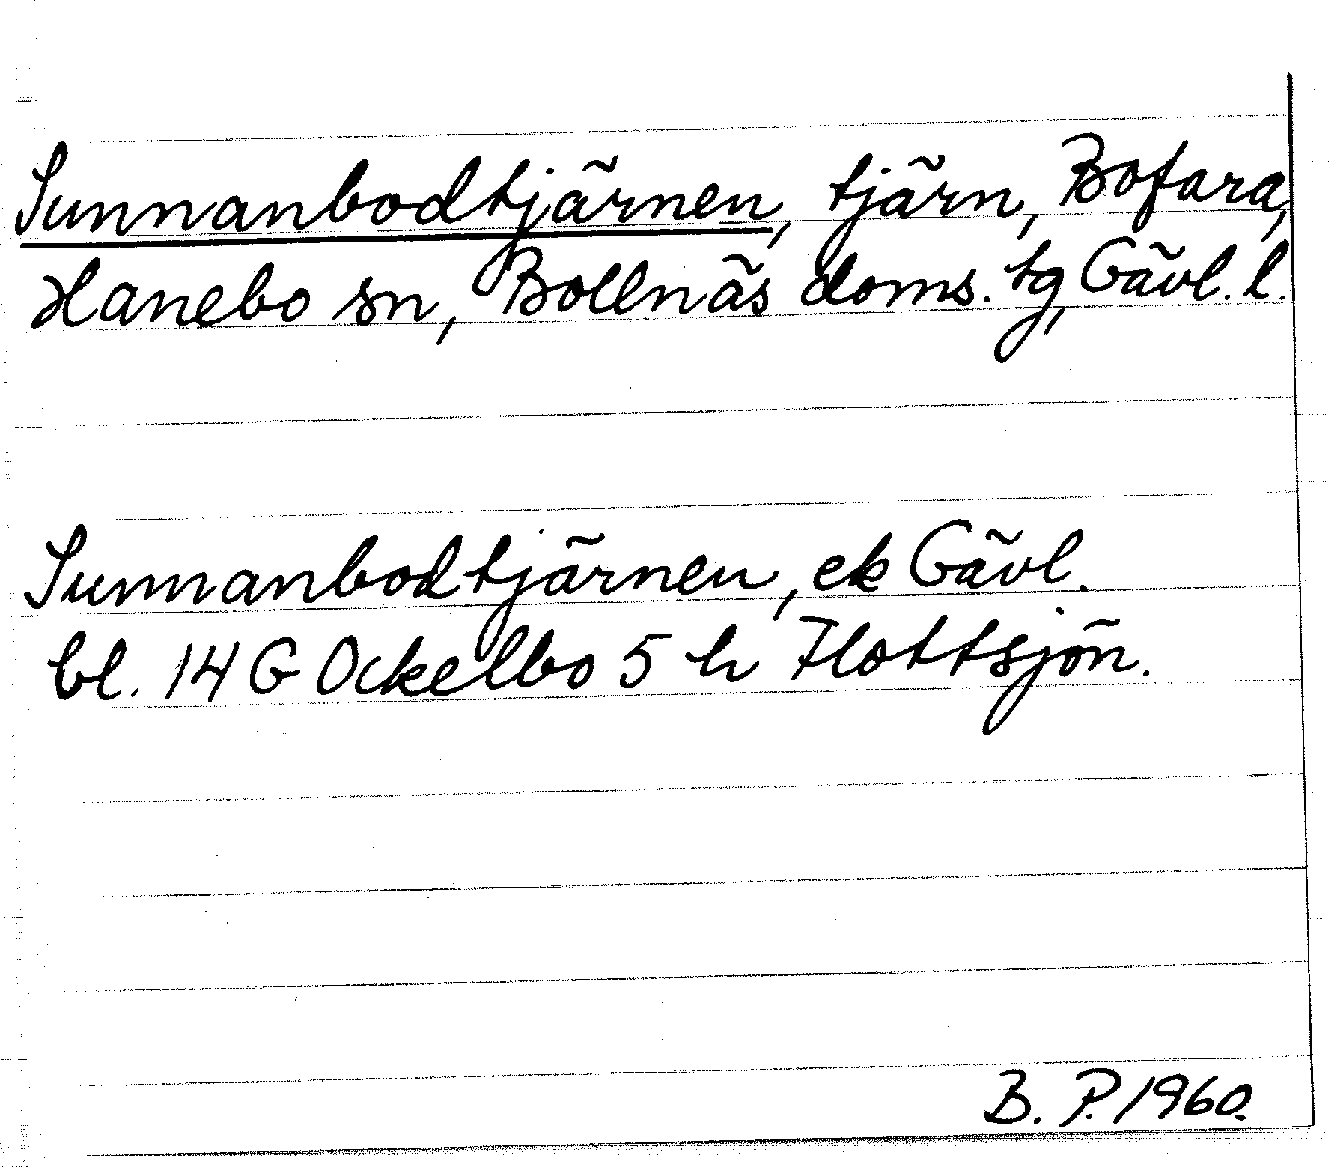 Sunnanbodtjärnen, tjärn, Bofara,
Hanebo sn, Bollnäs doms. tg, Gävl. l.
Sunnanbodtjärnen, ek Gävl.
bl. 14 G Ockelbo 5 h Flottsjön.
B. P. 1960.